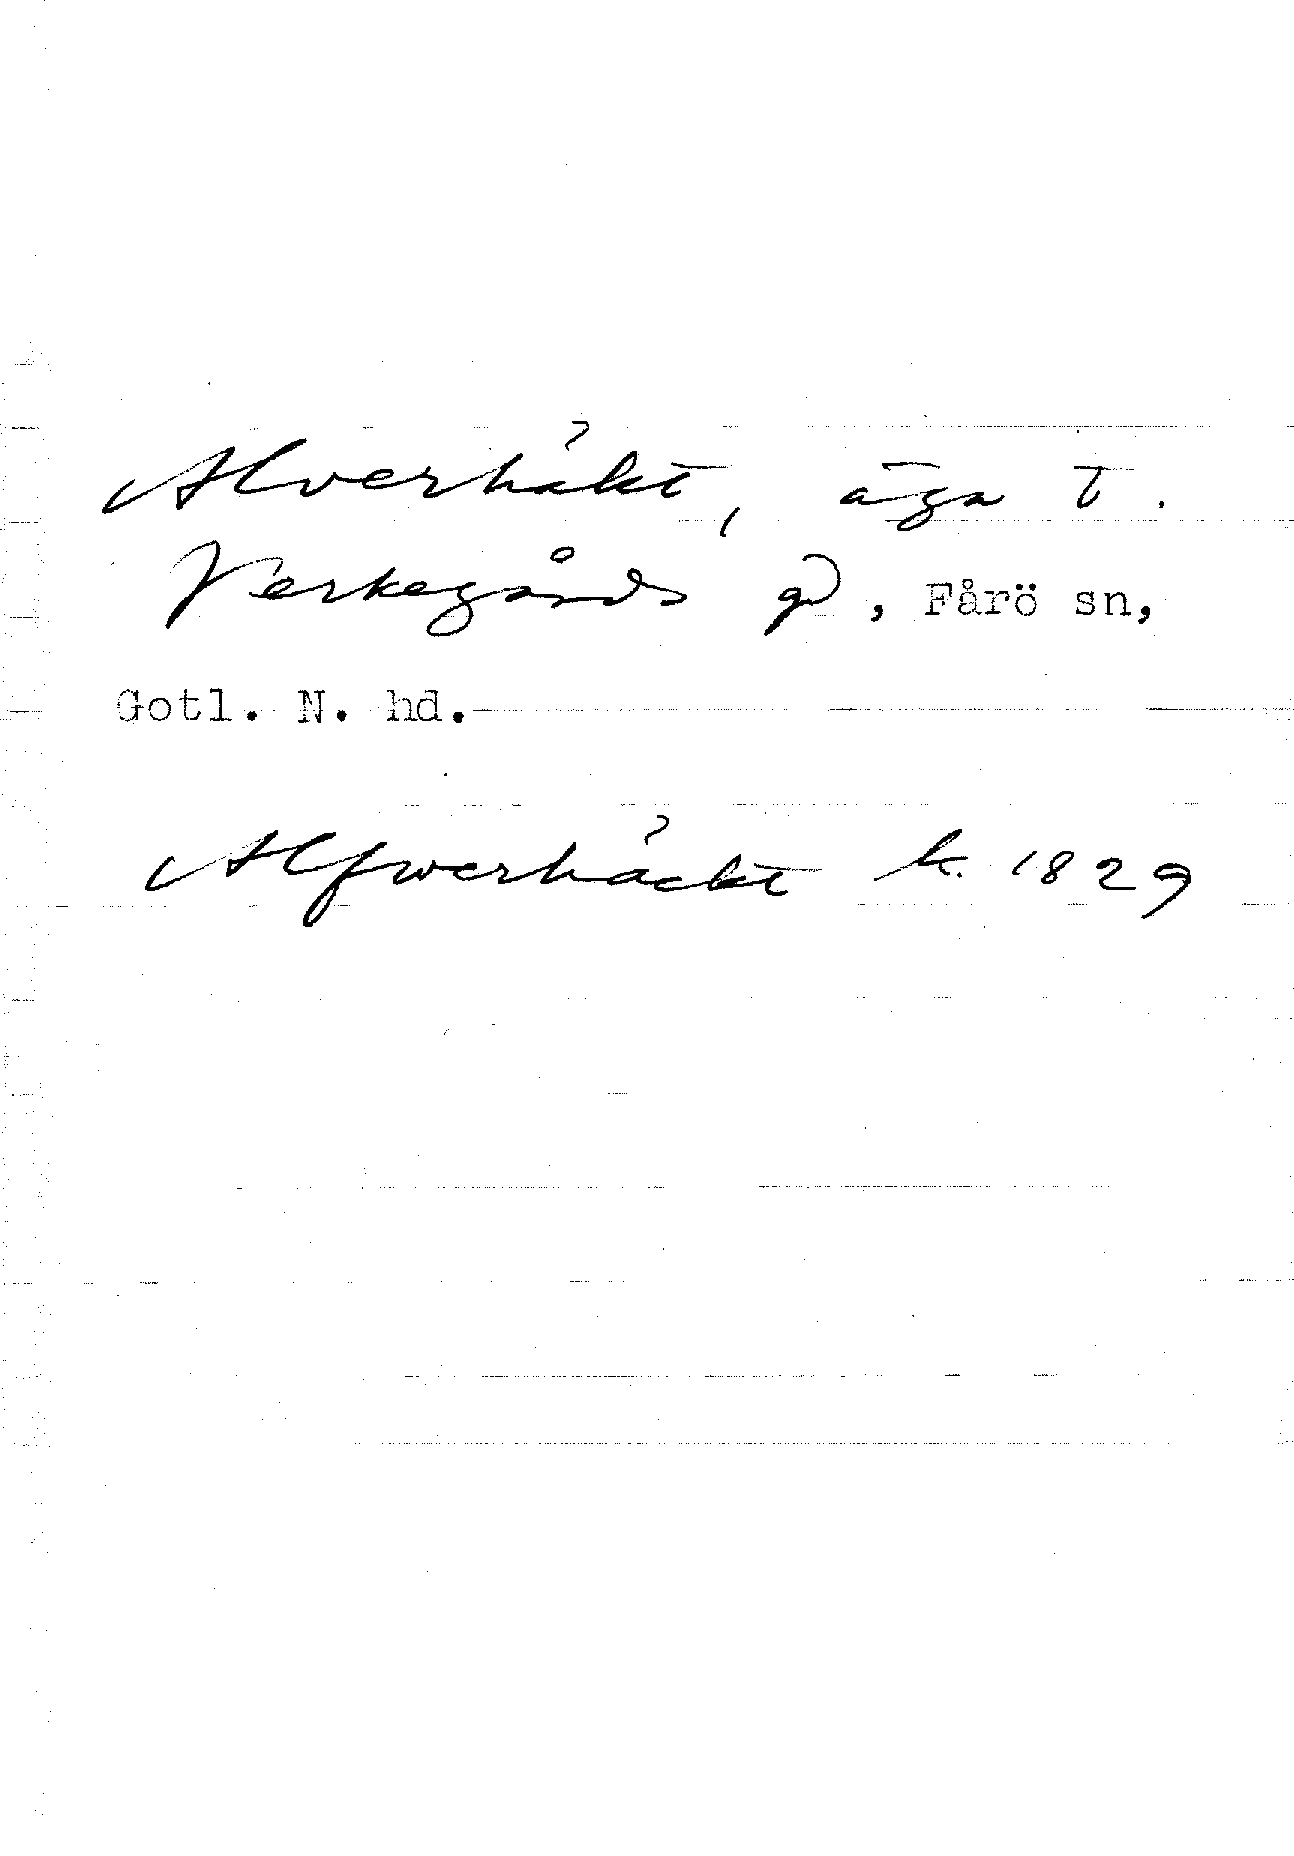 Alverhåkt, äga t.
Verkegårds gd, Fårö sn,
Gotl. N. hd.
Alfwerhåckt k. 1829